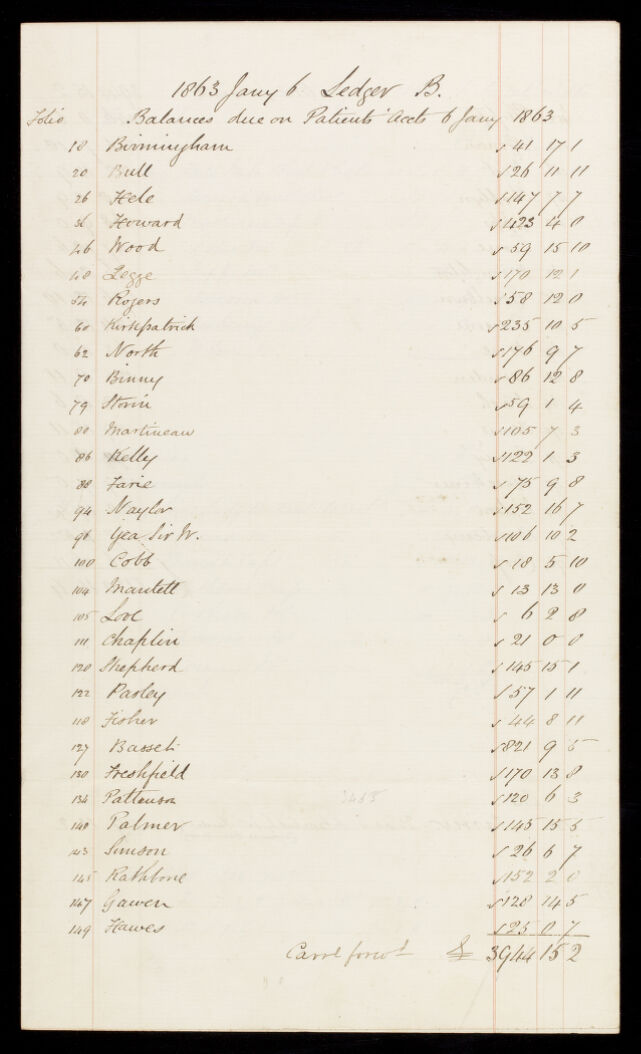 1863 Jany 6 Ledger B.
Folio Balances due on Patients' Accts 6 Jany 1863
18 Birmingham √ 41 17 1
20 Bull √ 26 11 11
26 Hele √ 147 7 7
36 Howard √ 423 4 0
46 Wood √ 59 15 10
48 Legge √ 170 12 1
54 Rogers √ 58 12 0
60 Kirkpatrick √ 235 10 5
62 North √ 176 9 7
70 Binny √ 86 12 8
79 Storin √ 59 1 4
80 Martineau √ 105 7 3
86 Kelly √ 122 1 3
88 Farie √ 75 9 8
94 Naylor √ 152 16 7
98 Yea Sir W. √ 106 10 2
100 Cobb √ 18 5 10
104 Mantell √ 13 13 0
105 Love √ 6 2 8
111 Chaplin √ 21 0 0
120 Shepherd √ 145 15 1
122 Pasley √ 57 1 11
118 Fisher √ 44 8 11
127 Basset √ 821 9 5
130 Freshfield √ 170 13 8
134 Pattenson √ 120 6 3
140 Palmer √ 145 15 5
143 Simson √ 26 6 7
145 Rathbone √ 152 2 0
147 Gawen √ 128 14 5
149 Hawes √ 25 0 7
Card forwd £ 3944 15 2